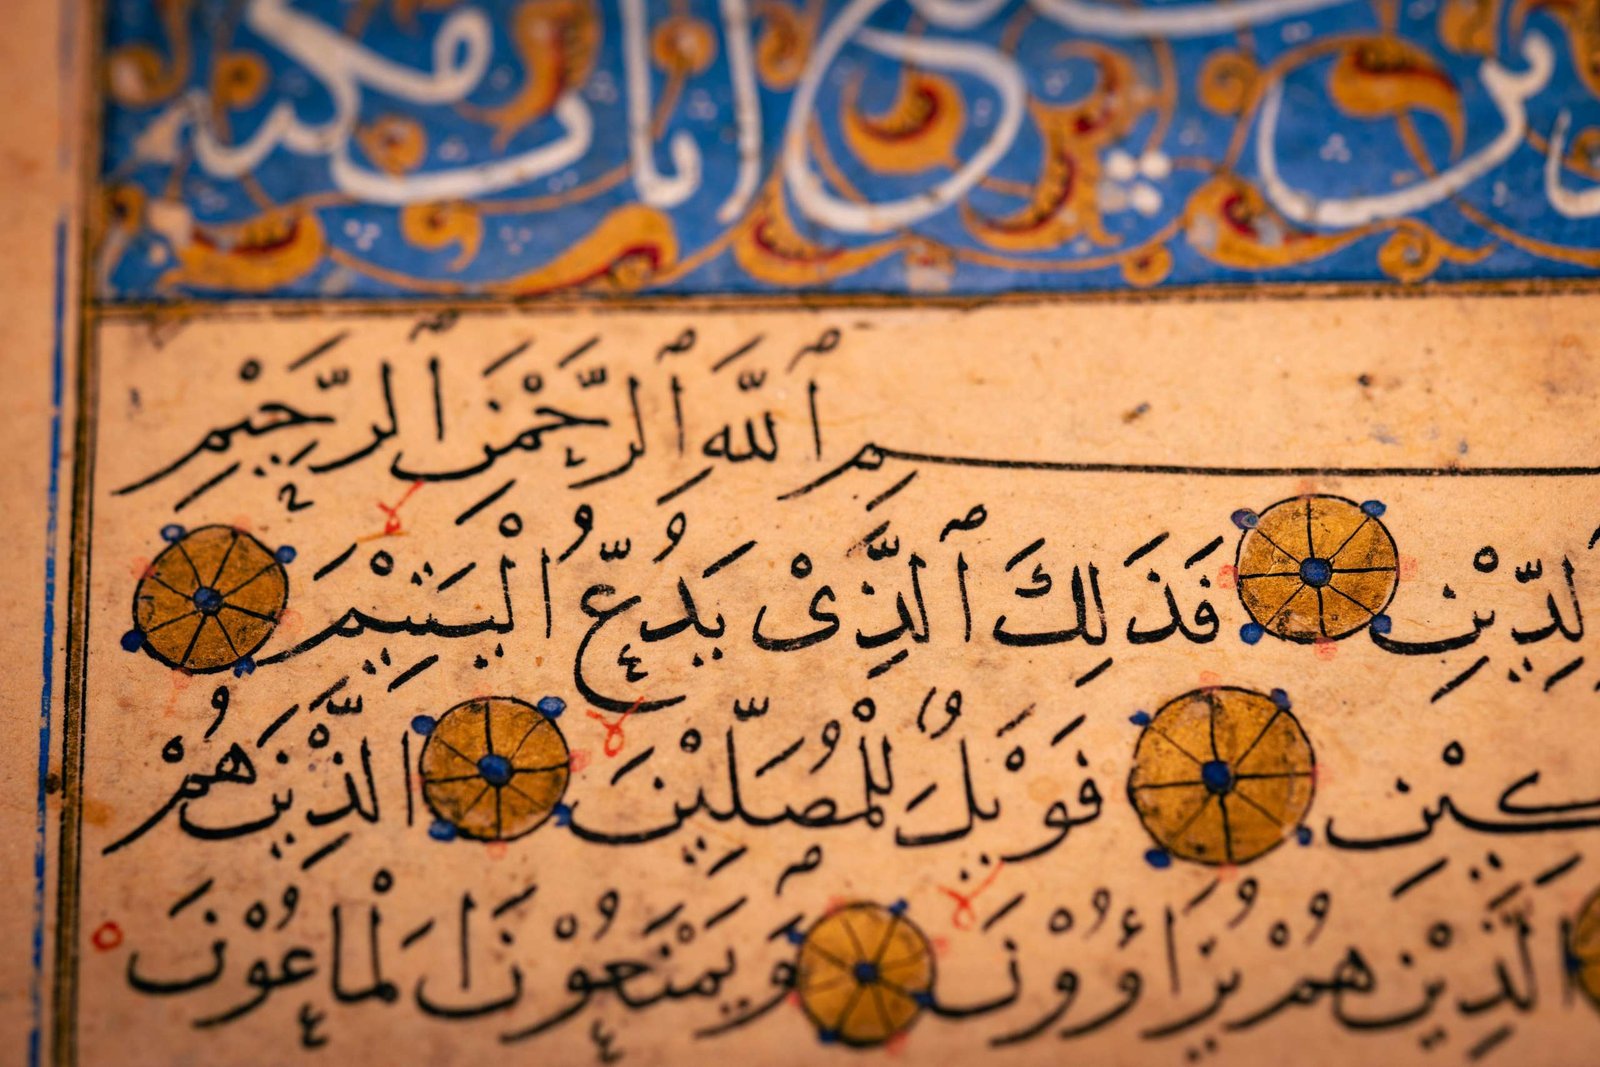 سبع ايات مكيه
سمِ ٱللَّهِ ٱلرَّحْمَنِ ٱلرَّحِيْمِ
لدِّيْنِ فَذَلِكَ ٱلَّذِىْ يَدُعُّ الْيَتِيْمَ
كِيْنِ فَوَيْلٌ لِّلْمُصَلِّيْنَ الَّذِيْنَ هُمْ
الَّذِيْنَ هُمْ يُرَاءُوْنَ وَيَمْنَعُوْنَ الْمَاعُوْنَ